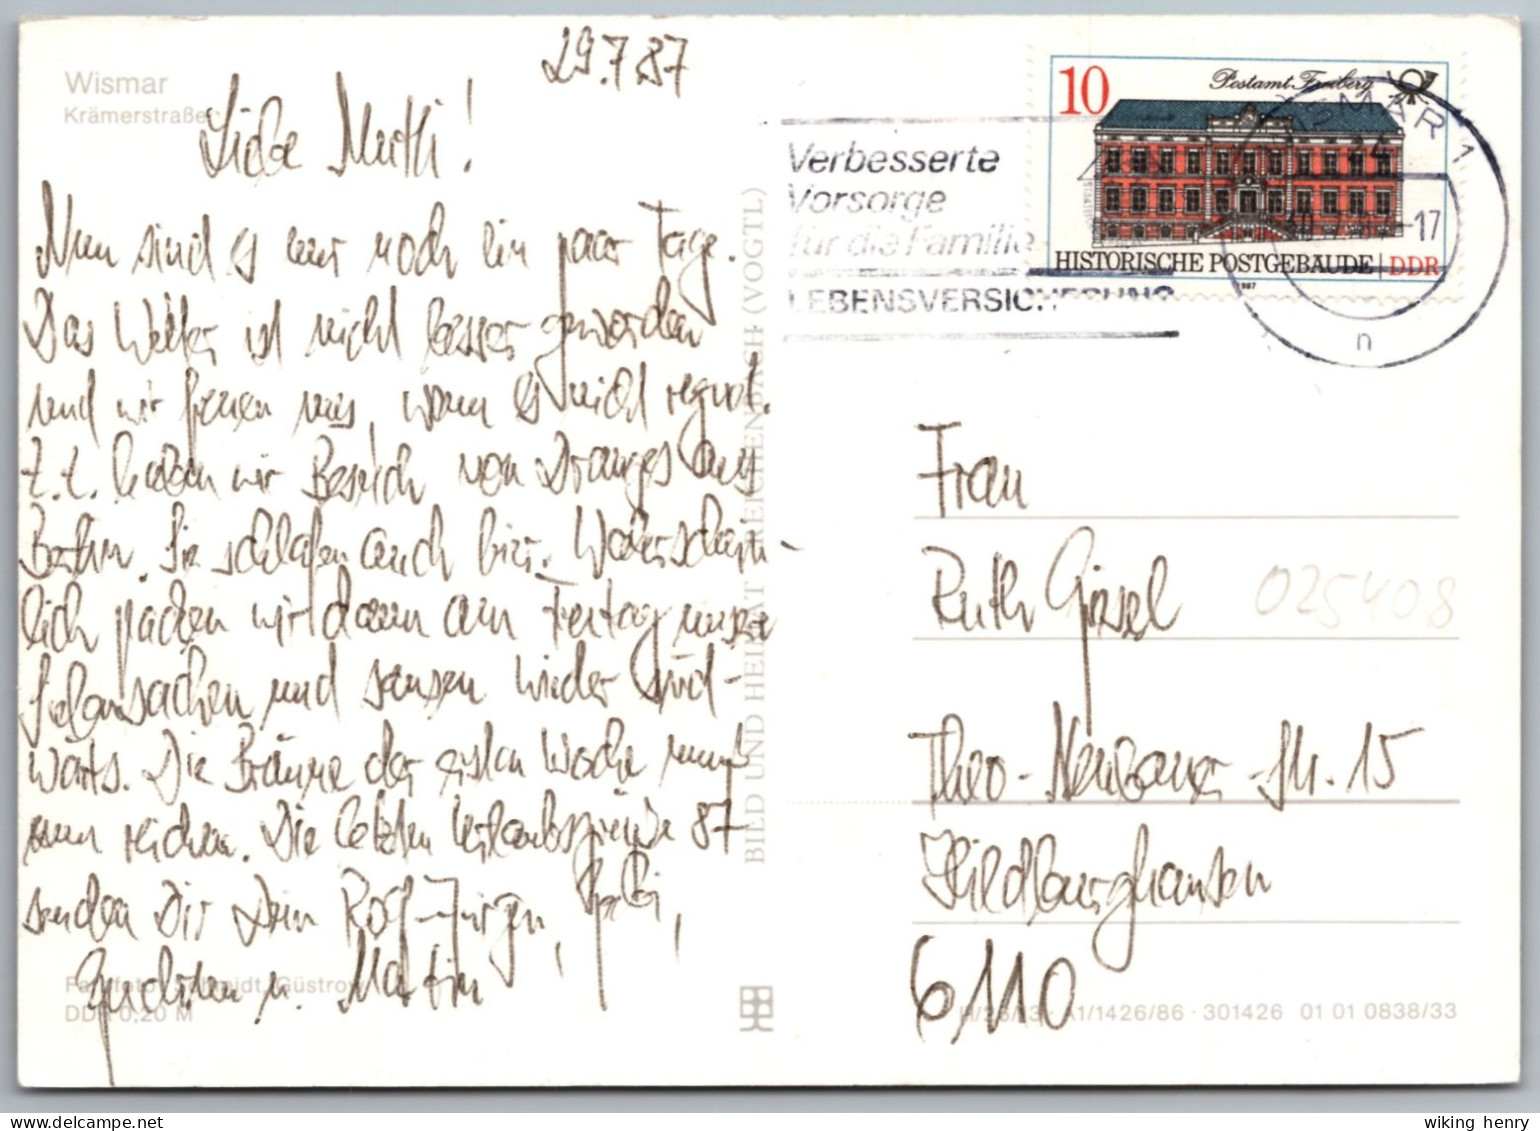 Wismar
Krämerstraße
29.7.87
Liebe Mutti!
Nun sind es nur noch ein paar Tage.
Das Wetter ist nicht besser geworden
und wir freuen uns, wenn es nicht regnet.
z.t. haben wir Besuch von aus
Berlin. Sie schlafen auch hier. Wahrschein-
lich packen wir dann am Freitag unsere
Siebensachen und sausen wieder süd-
wärts. Die Bräune der ersten Woche muß
nun reichen. Die letzten Urlaubsgrüße 87
senden Dir Dein Rolf-Jürgen,
u. Martin
Farbfoto: Schmidt, Güstrow
DDR 0,20 M
BILD UND HEIMAT REICHENBACH (VOGTL)
Verbesserte
Vorsorge
für die Familie
LEBENSVERSICHERUNG
10
Postamt Freiberg
HISTORISCHE POSTGEBÄUDE | DDR
1987
WISMAR 1
-17
n
Frau
Ruth Gissel
025408
Theo-Neubauer-Str. 15
Hildburghausen
6110
A1/1426/86 · 301426 01 01 0838/33
wiking henry